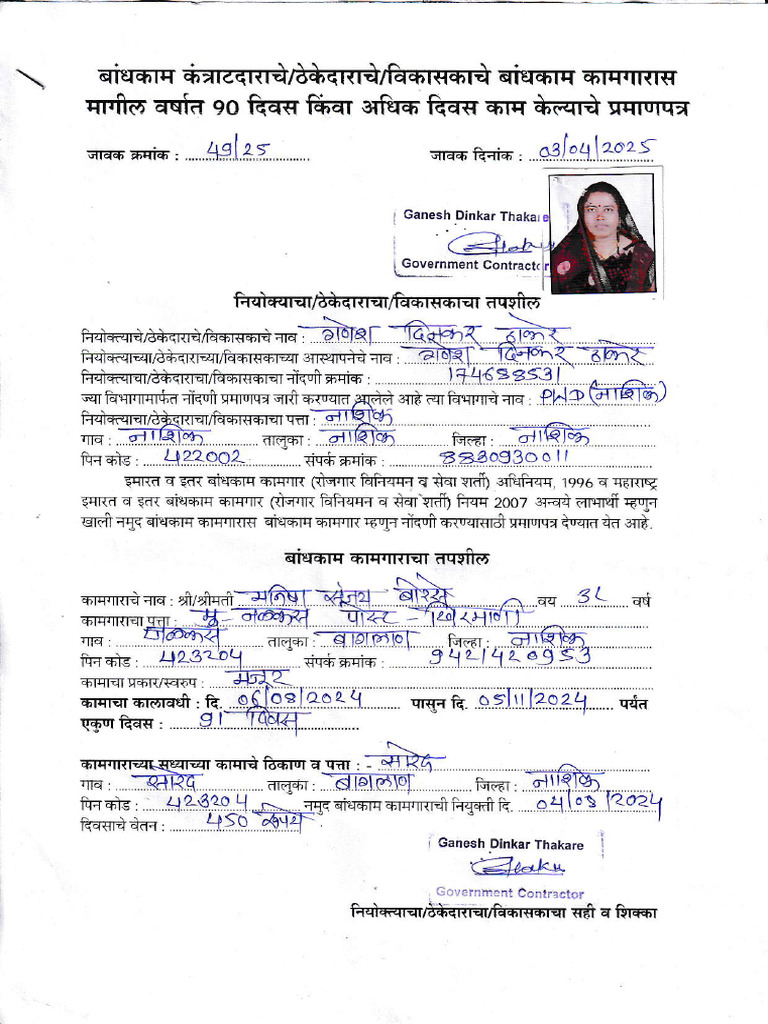 बांधकाम कंत्राटदाराचे/ठेकेदाराचे/विकासकाचे बांधकाम कामगारास
मागील वर्षात 90 दिवस किंवा अधिक दिवस काम केल्याचे प्रमाणपत्र
जावक क्रमांक : 49/25 जावक दिनांक : 03/04/2025
Ganesh Dinkar Thakare
Government Contractor
नियोक्याचा/ठेकेदाराचा/विकासकाचा तपशील
नियोक्त्याचे/ठेकेदाराचे/विकासकाचे नाव : गणेश दिनकर ठाकरे
नियोक्त्याच्या/ठेकेदाराच्या/विकासकाच्या आस्थापनेचे नाव : गणेश दिनकर ठाकरे
नियोक्त्याचा/ठेकेदाराचा/विकासकाचा नोंदणी क्रमांक : 174688531
ज्या विभागामार्फत नोंदणी प्रमाणपत्र जारी करण्यात आलेले आहे त्या विभागाचे नाव : PWD (नाशिक)
नियोक्त्याचा/ठेकेदाराचा/विकासकाचा पत्ता : नाशिक
गाव : नाशिक तालुका : नाशिक जिल्हा : नाशिक
पिन कोड : 422002 संपर्क क्रमांक : 8830930011
इमारत व इतर बांधकाम कामगार (रोजगार विनियमन व सेवा शर्ती) अधिनियम, 1996 व महाराष्ट्र
इमारत व इतर बांधकाम कामगार (रोजगार विनियमन व सेवा शर्ती) नियम 2007 अन्वये लाभार्थी म्हणुन
खाली नमुद बांधकाम कामगारास बांधकाम कामगार म्हणुन नोंदणी करण्यासाठी प्रमाणपत्र देण्यात येत आहे.
बांधकाम कामगाराचा तपशील
कामगाराचे नाव : श्री/श्रीमती मनिषा संजय बोरसे वय 38 वर्ष
कामगाराचा पत्ता : मु - नळकस पोस्ट - खिरमाणी
गाव : नळकस तालुका : बागलाण जिल्हा : नाशिक
पिन कोड : 423204 संपर्क क्रमांक : 9421420953
कामाचा प्रकार/स्वरुप : मजूर
कामाचा कालावधी : दि. 06/08/2024 पासुन दि. 05/11/2024 पर्यंत
एकुण दिवस : 91 दिवस
कामगाराच्या सध्याच्या कामाचे ठिकाण व पत्ता : - सारदे
गाव : सारदे तालुका : बागलाण जिल्हा : नाशिक
पिन कोड : 423204 नमुद बांधकाम कामगाराची नियुक्ती दि. 04/08/2024
दिवसाचे वेतन : 450 रुपये
Ganesh Dinkar Thakare
Government Contractor
नियोक्याचा/ठेकेदाराचा/विकासकाचा सही व शिक्का